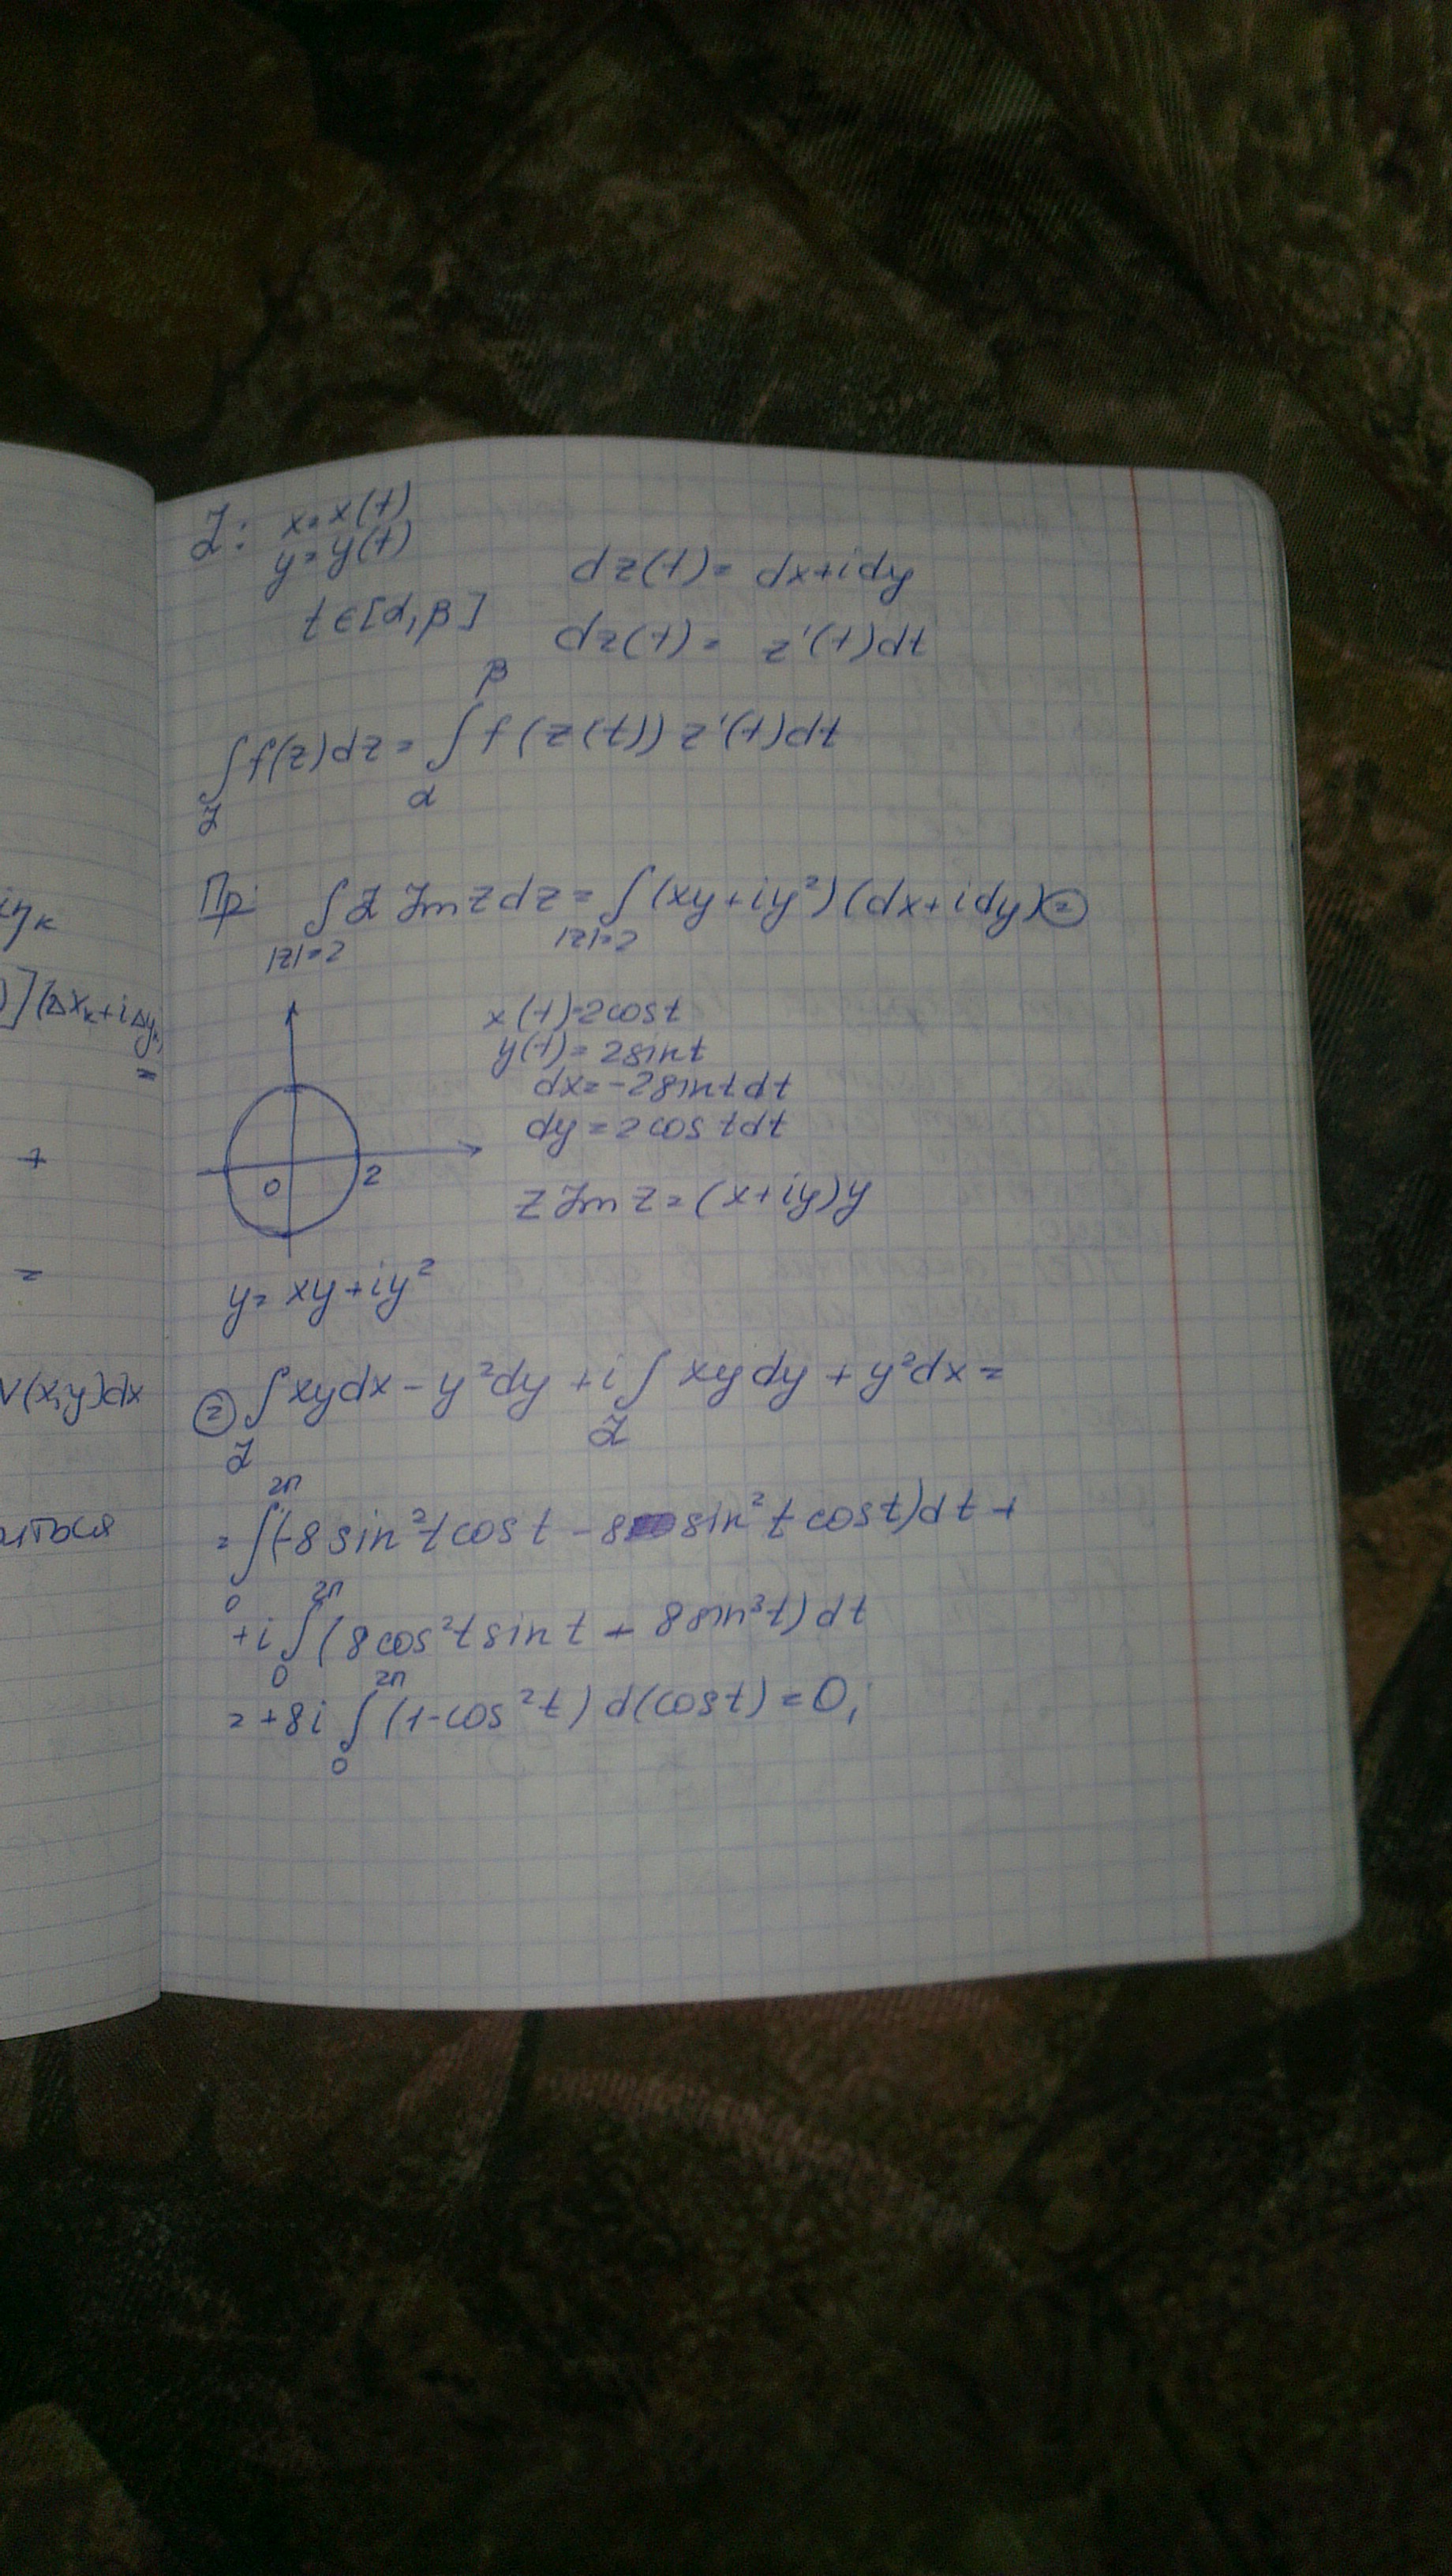 ℒ: x=x(t)
y=y(t)
t∈[α,β]
dz(t)= dx+idy
dz(t)= z'(t)dt
∫_ℒ f(z)dz= ∫_α^β f(z(t)) z'(t)dt
Пр: ∫_{|z|=2} z Im z dz = ∫_{|z|=2} (xy+iy²)(dx+idy) ⊜
x(t)=2cost
y(t)=2sint
dx=-2sintdt
dy=2costdt
0 2
z Im z=(x+iy)y
y= xy+iy²
⊜ ∫_ℒ xydx-y²dy +i∫_ℒ xydy+y²dx=
=∫_0^{2π} (-8sin²t cost -8 sin²t cost)dt+
+i∫_0^{2π} (8cos²t sint + 8sin³t)dt
=+8i∫_0^{2π} (1-cos²t) d(cost)=0;
iηк
)](Δxк+iΔyк)
=
+
=
v(x,y)dx